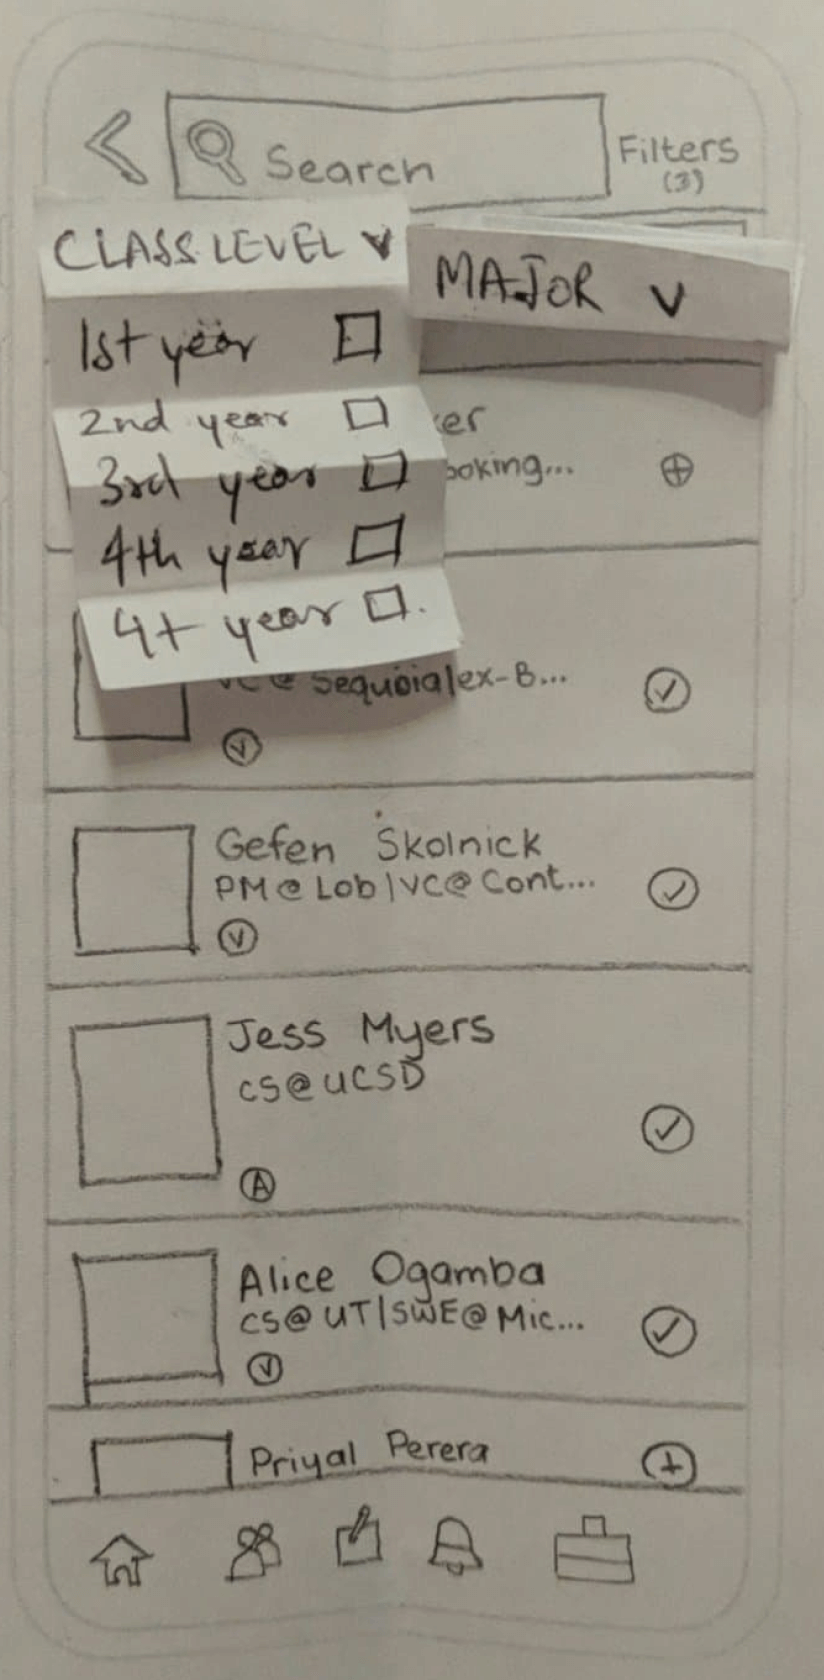 Search
Filters
(3)
CLASS LEVEL
MAJOR
1st year
2nd year
3rd year
4th year
4+ year
oking...
@ Sequoia|ex-B...
V
Gefen Skolnick
PM@Lob|VC@Cont...
V
Jess Myers
CS@UCSD
A
Alice Ogamba
CS@UT|SWE@Mic...
V
Priyal Perera